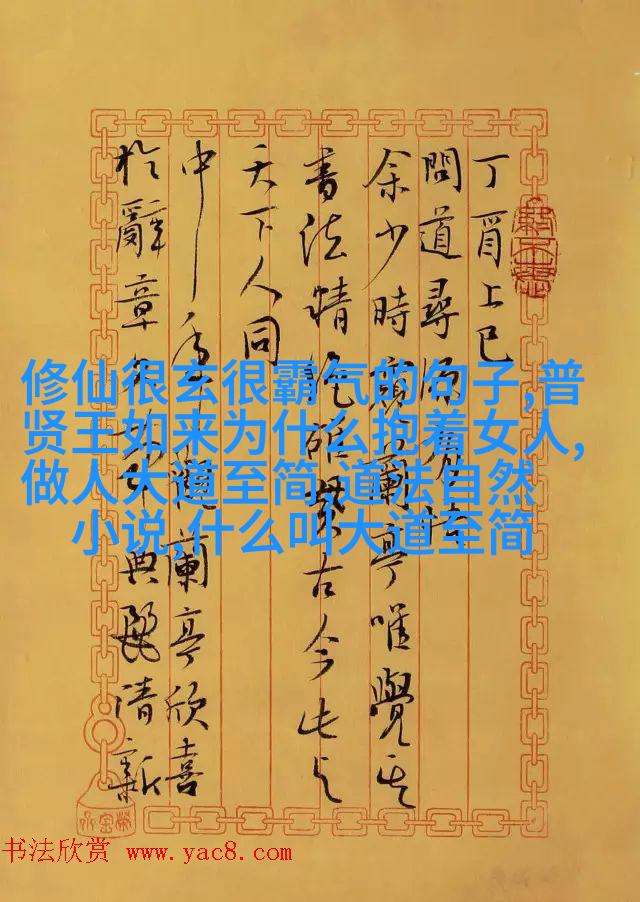 修仙很玄很霸气的句子,普
贤王如来为什么抱着女人,
做人大道至简,道法自然
小说,什么叫大道至简
丁酉上巳
問道尋源
余少時觀蘭亭唯覺其
書法精絕古今此與
天下人同
中觀蘭亭欣喜
於辭章典麗清新
书法欣赏 www.yac8.com